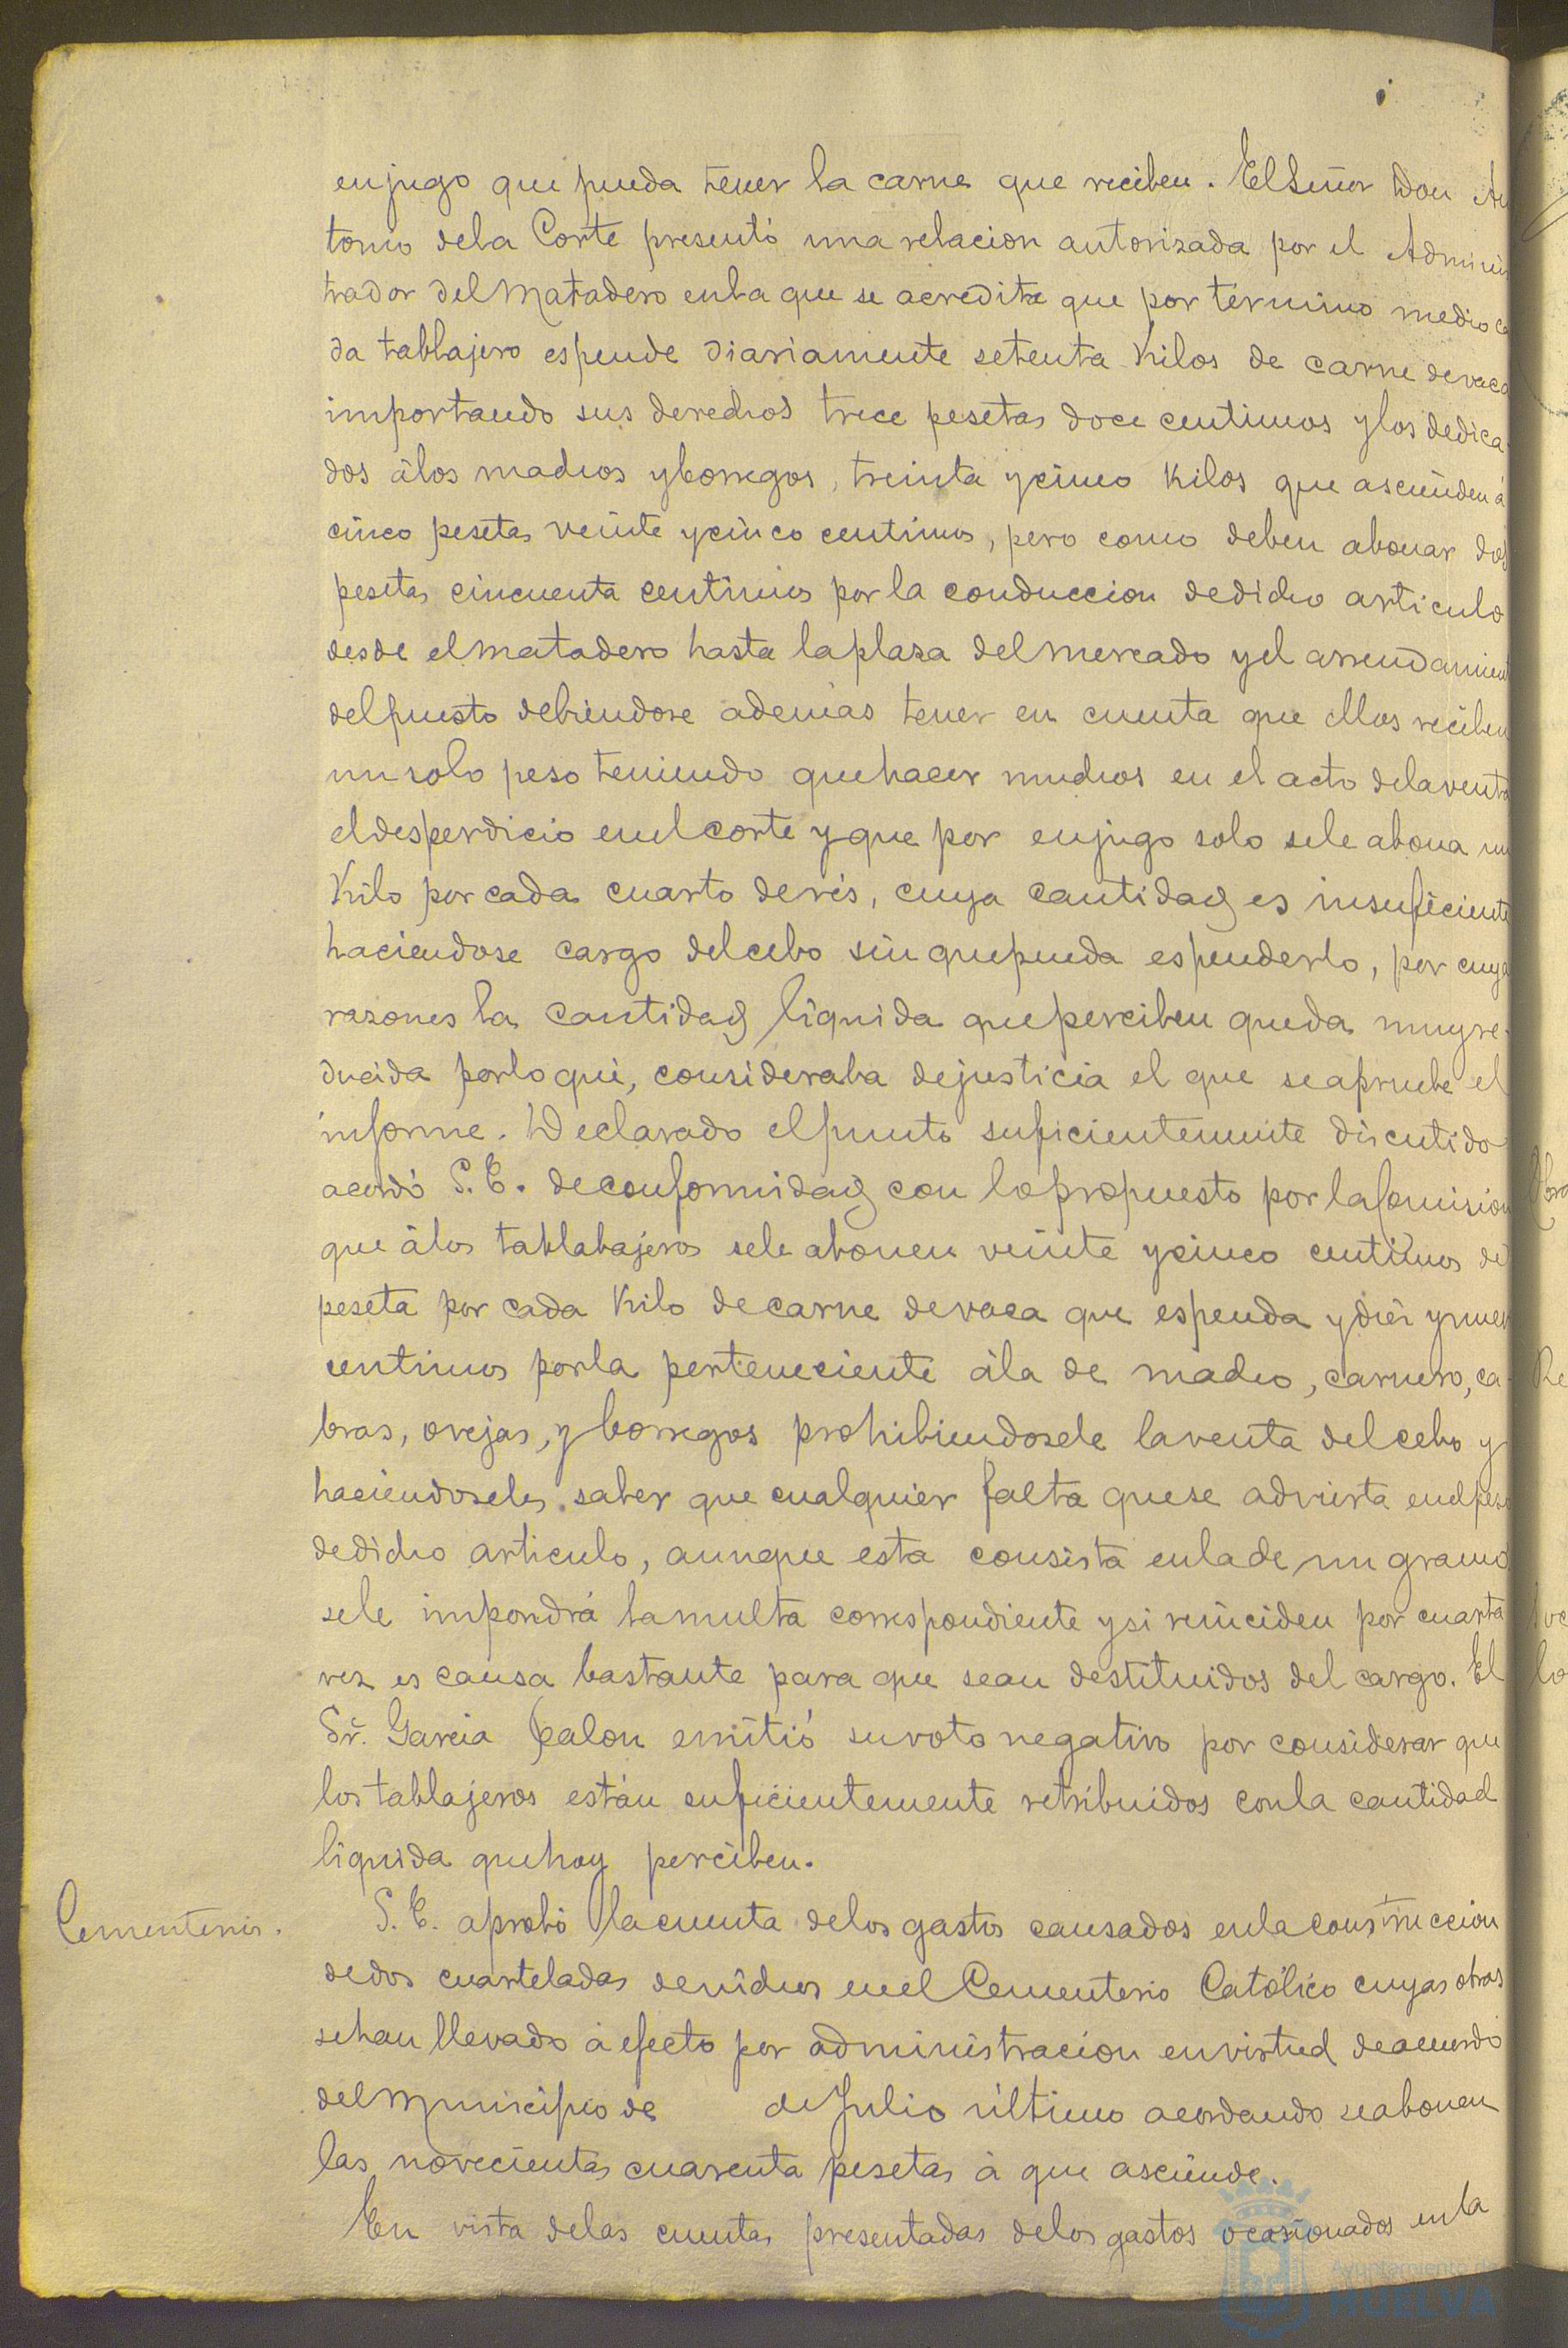 enjugo que pueda tener la carne que reciben. El Señor Don An
tonio dela Corte presentó una relacion autorizada por el Adminis
trador del Matadero enla que se acredita que por término medio ca
da tablajero espende diariamente setenta Kilos de carne devaca
importando sus derechos trece pesetas doce centimos y los dedica-
dos álos machos y borregos, treinta y cinco Kilos que ascienden á
cinco pesetas veinte y cinco centimos, pero como deben abonar dos
pesetas cincuenta centimos por la conduccion dedicho articulo
desde el matadero hasta la plaza del mercado y el arrendamient
del puesto debiendose ademas tener en cuenta que ellos reciben
un solo peso teniendo que hacer muchos en el acto dela venta
el desperdicio enel corte y que por enjugo solo sele abona un
Kilo por cada cuarto de rés, cuya cantidad es insuficiente
haciendose cargo del cebo sin que pueda espenderlo, por cuya
razones la cantidad líquida que perciben queda muy re-
ducida por lo que, consideraba dejusticia el que se apruebe el
informe. Declarado el punto suficientemente discutido
acordó S.E. deconformidad con lo propuesto por la Comision
que álos tablabajeros sele abonen veinte y cinco centimos de
peseta por cada Kilo de carne devaca que espenda y diez y nuev
centimos por la perteneciente ála de macho, carnero, ca-
bras, ovejas, y borregos prohibiendosele la venta del cebo y
haciendoseles saber que cualquier falta que se advierta en el peso
dedicho articulo, aunque esta consista enla de un gramo
sele impondrá la multa correspondiente y si reinciden por cuarta
vez es causa bastante para que sean destituidos del cargo. El
Sr. Garcia Calon emitió su voto negativo por considerar que
los tablajeros están suficientemente retribuidos conla cantidad
liquida que hoy perciben.
Cementerios.
S.E. aprobó la cuenta delos gastos causados enla construccion
dedos cuarteladas denichos enel Cementerio Católico cuyas obras
sehan llevado á efecto por administracion envirtud deacuerdo
del Municipio de de Julio último acordando se abonen
las novecientas cuarenta pesetas á que asciende.
En vista delas cuentas presentadas delos gastos ocasionados en la
Ayuntamiento de
HUELVA